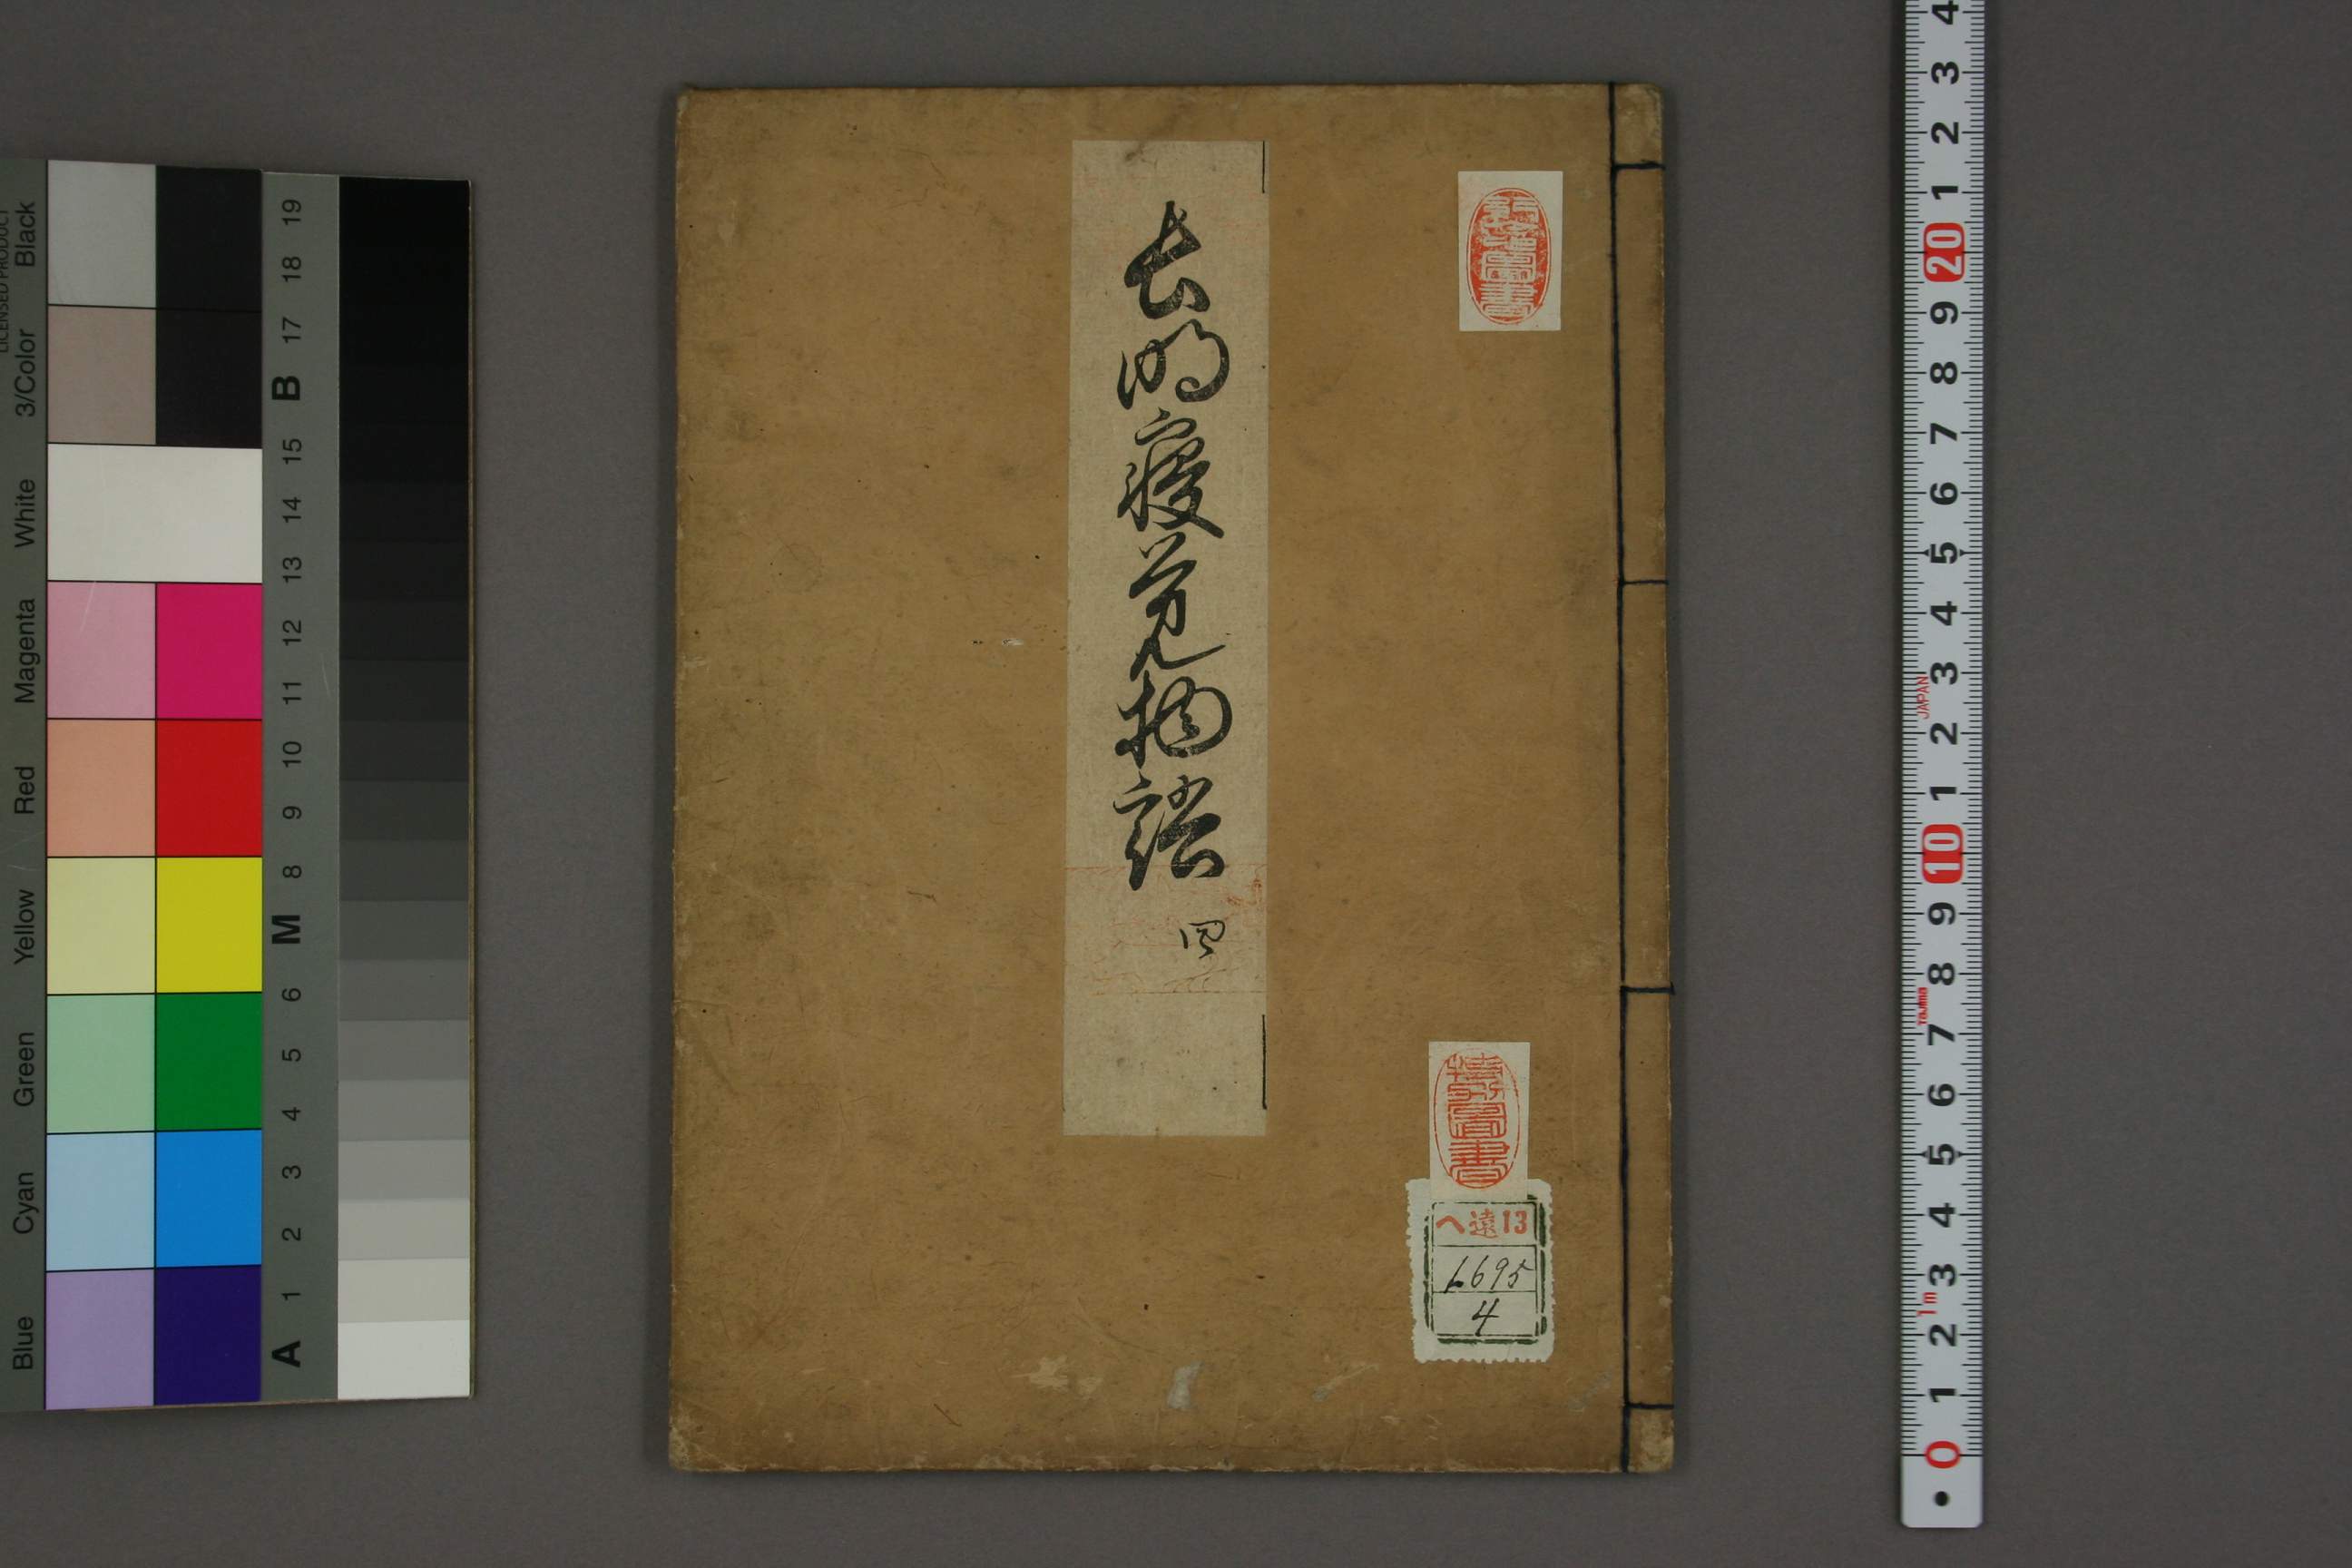 長明寝覚物語
四
特別図書
ヘ遠13
1695
4
Black
3/Color
White
Magenta
Red
Yellow
Green
Cyan
Blue
19
18
17
B
15
14
13
12
11
10
9
8
M
6
5
4
3
2
1
A
4
3
2
1
20
9
8
7
6
5
4
3
JAPAN
2
1
10
9
8
Tajima
7
6
5
4
3
1m
2
1
0